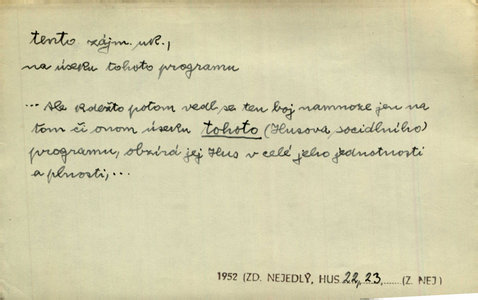 tento zájm. uk.,
na úseku tohoto programu
... Ale kdežto potom vedl se ten boj namnoze jen na
tom či onom úseku tohoto (Husova, sociálního)
programu, obzírá jej Hus v celé jeho jednotnosti
a plnosti,...
1952 (ZD. NEJEDLÝ, HUS 22, 23,......(Z. NEJ)